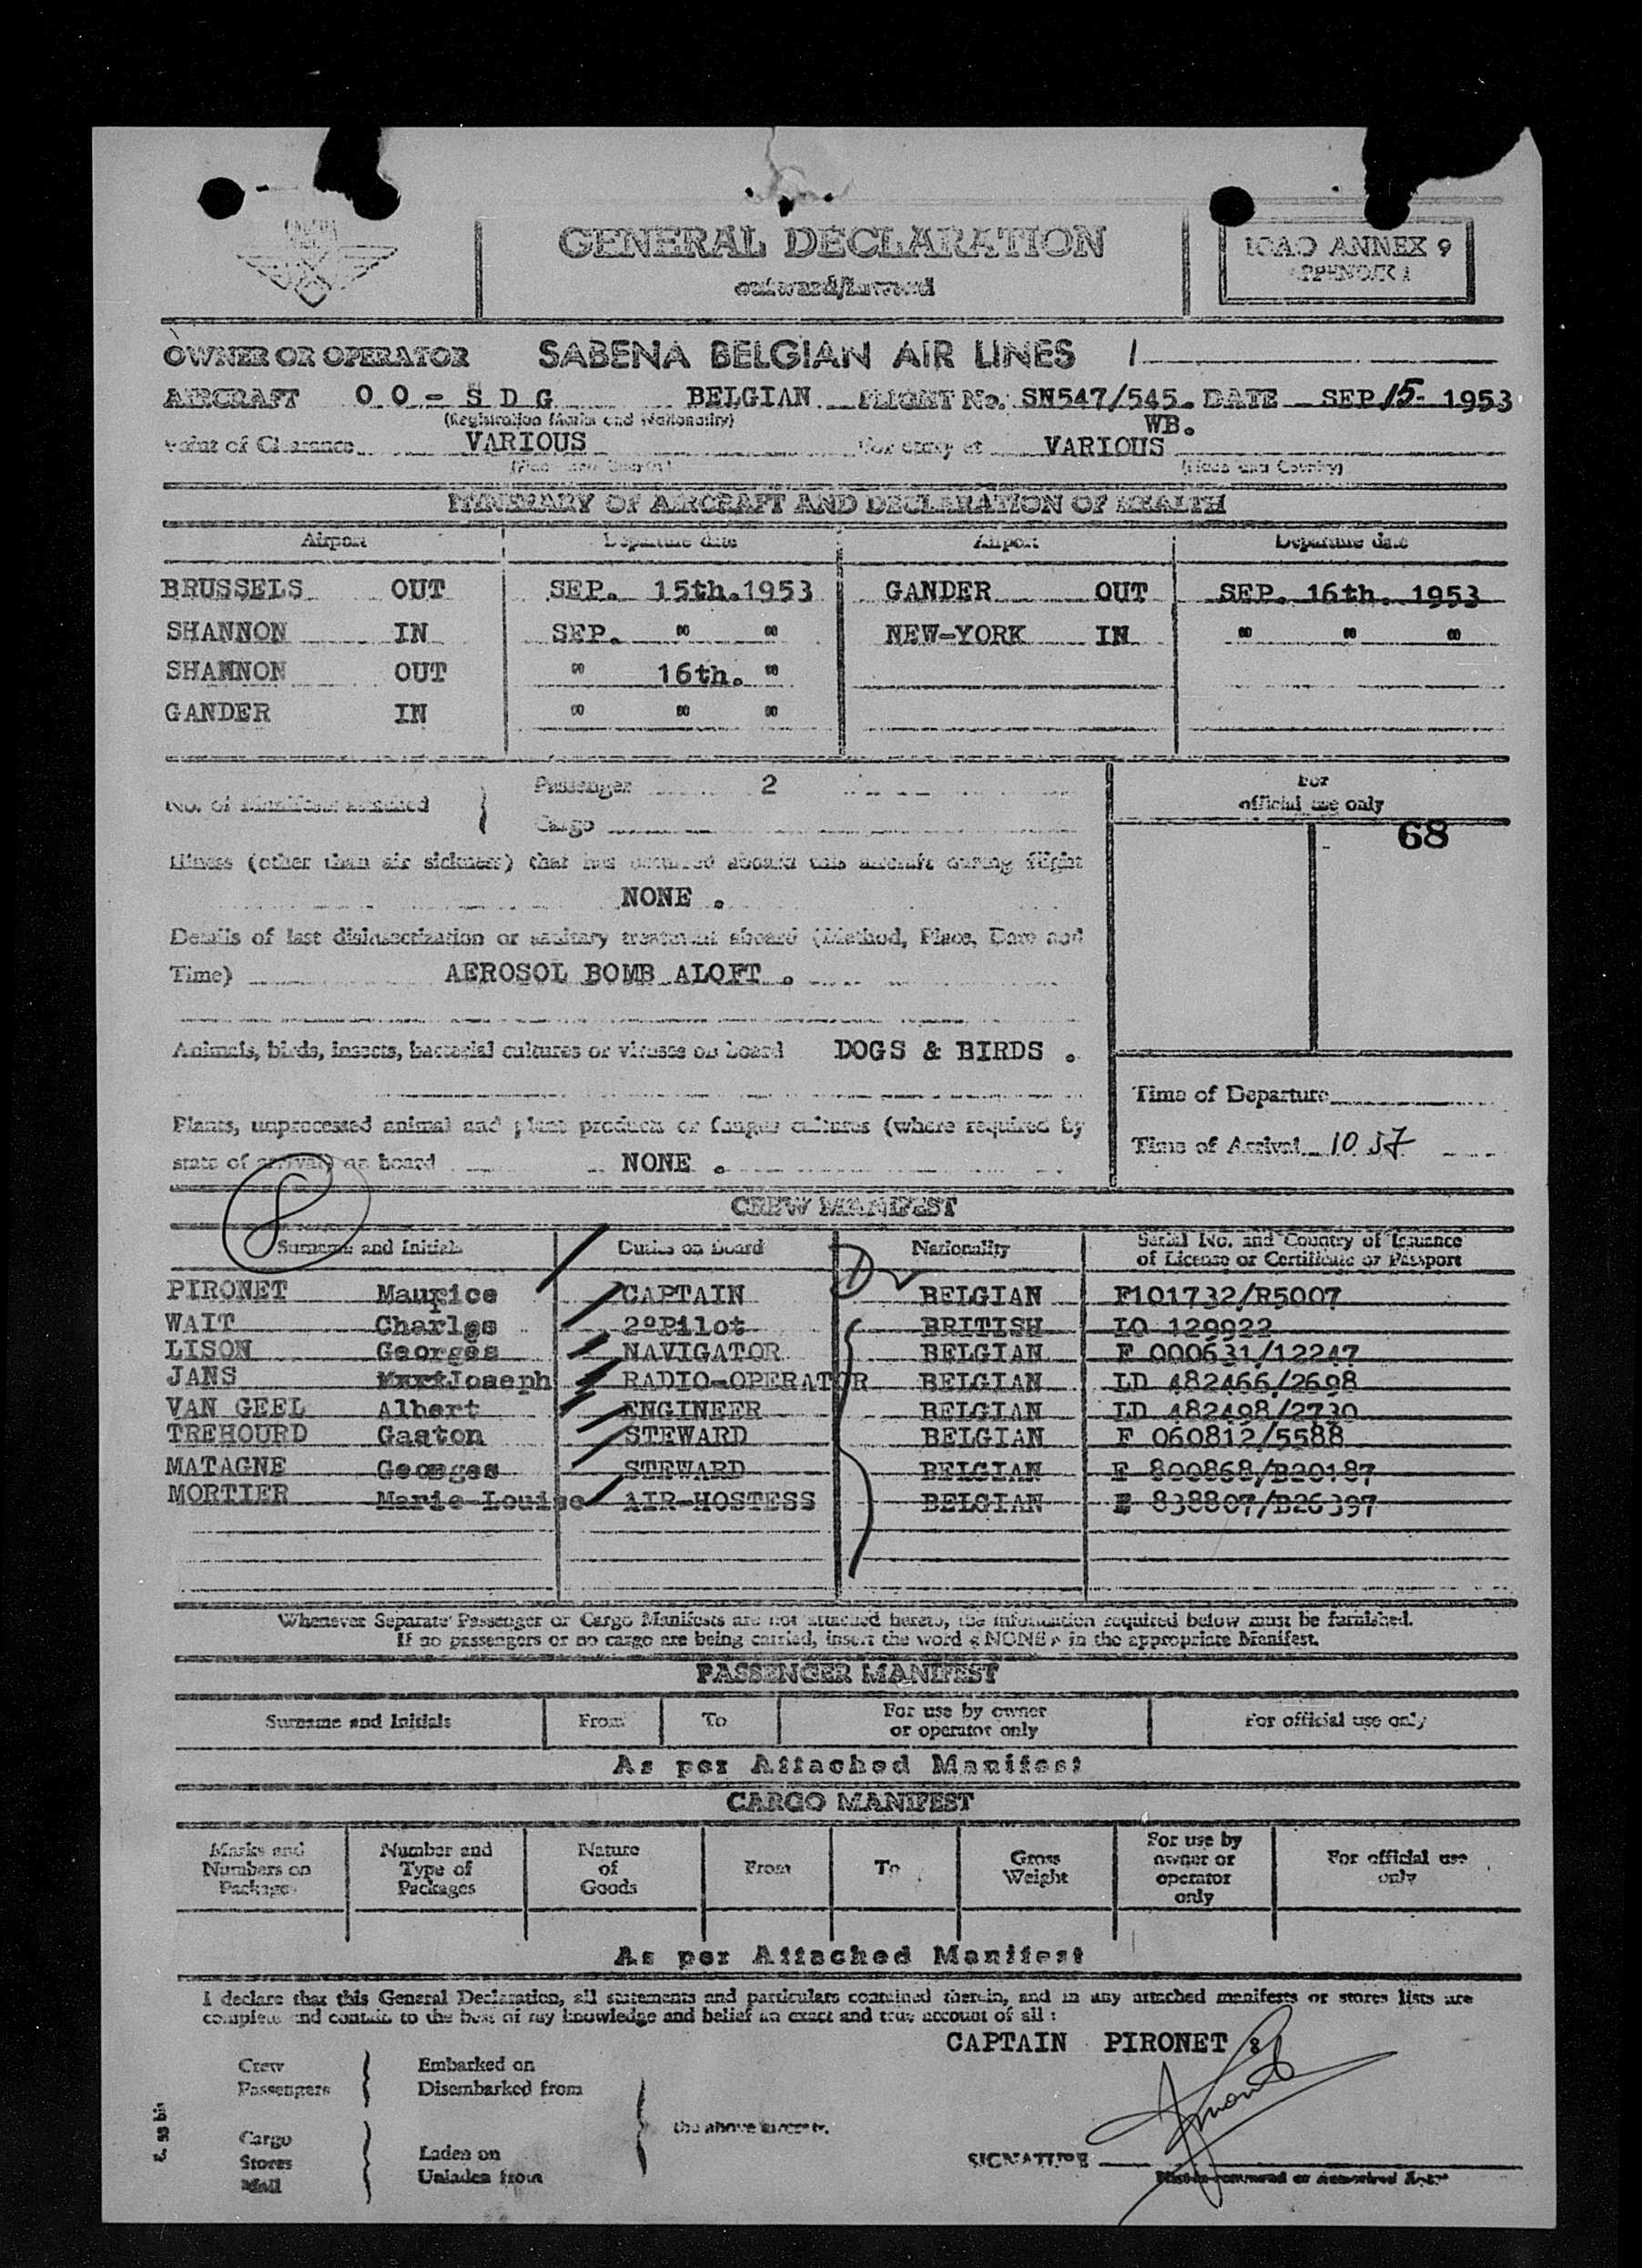 SABENA
GENERAL DECLARATION
outward/inward
ICAO ANNEX 9
APPENDIX 1
OWNER OR OPERATOR SABENA BELGIAN AIR LINES
AIRCRAFT OO-SDG BELGIAN FLIGHT No. SN547/545. DATE SEP 15- 1953
(Registration Marks and Nationality) WB.
Point of Clearance VARIOUS For entry at VARIOUS
(Place and Country) (Place and Country)
ITINERARY OF AIRCRAFT AND DECLARATION OF HEALTH
Airport Departure date Airport Departure date
BRUSSELS OUT SEP. 15th.1953 GANDER OUT SEP. 16th. 1953
SHANNON IN SEP. " " NEW-YORK IN " " "
SHANNON OUT " 16th. "
GANDER IN " " "
No. of Manifests attached { Passenger 2
Cargo
For
official use only
68
Illness (other than air sickness) that has occurred aboard this aircraft during flight
NONE .
Details of last disinsectization or sanitary treatment aboard (Method, Place, Date and
Time) AEROSOL BOMB ALOFT .
Animals, birds, insects, bacterial cultures or viruses on board DOGS & BIRDS .
Time of Departure
Plants, unprocessed animal and plant products or fungus cultures (where required by
Time of Arrival 10 57
state of arrival) on board NONE .
8
CREW MANIFEST
Surname and Initials Duties on Board Nationality Serial No. and Country of Issuance
of License or Certificate or Passport
PIRONET Maurice CAPTAIN BELGIAN F101732/R5007
WAIT Charles 2ºPilot BRITISH IO 129922
LISON Georges NAVIGATOR BELGIAN F 000631/12247
JANS Joseph RADIO-OPERATOR BELGIAN LD 482466/2698
VAN GEEL Albert ENGINEER BELGIAN LD 482498/2730
TREHOURD Gaston STEWARD BELGIAN F 060812/5588
MATAGNE Georges STEWARD BELGIAN F 800868/B20187
MORTIER Marie-Louise AIR-HOSTESS BELGIAN E 838807/B26397
Whenever Separate Passenger or Cargo Manifests are not attached hereto, the information required below must be furnished.
If no passengers or no cargo are being carried, insert the word «NONE» in the appropriate Manifest.
PASSENGER MANIFEST
Surname and Initials From To For use by owner
or operator only For official use only
As per Attached Manifest
CARGO MANIFEST
Marks and
Numbers on
Packages
Number and
Type of
Packages
Nature
of
Goods
From
To
Gross
Weight
For use by
owner or
operator
only
For official use
only
As per Attached Manifest
I declare that this General Declaration, all statements and particulars contained therein, and in any attached manifests or stores lists are
complete and contain to the best of my knowledge and belief an exact and true account of all :
CAPTAIN PIRONET
Crew
Passengers
Embarked on
Disembarked from
the above aircraft.
Cargo
Stores
Mail
Laden on
Unladen from
SIGNATURE
Pironet